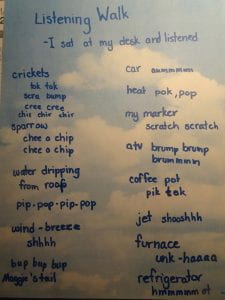 Listening Walk
-I sat at my desk and listened
crickets
tok tok
scra bump
cree cree
chir chir chir
sparrow
chee o chip
chee o chip
water dripping
from roof
pip.pop.pip.pop
wind-breeze
shhhh
bup bup bup
Maggie's tail
car
heat pok, pop
my marker
scratch scratch
atv brump brump
brummmm
coffee pot
pik tok
jet shooshhh
furnace
unk-haaaa
refrigerator
hmmmmm ot